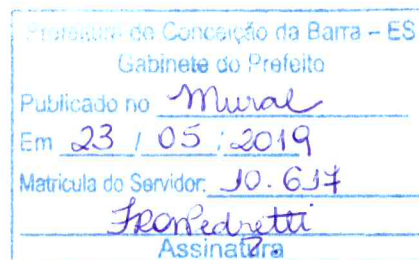 Prefeitura de Conceição da Barra – ES
Gabinete do Prefeito
Publicado no Mural
Em 23 / 05 / 2019
Matrícula do Servidor: 10.617
Assinatura